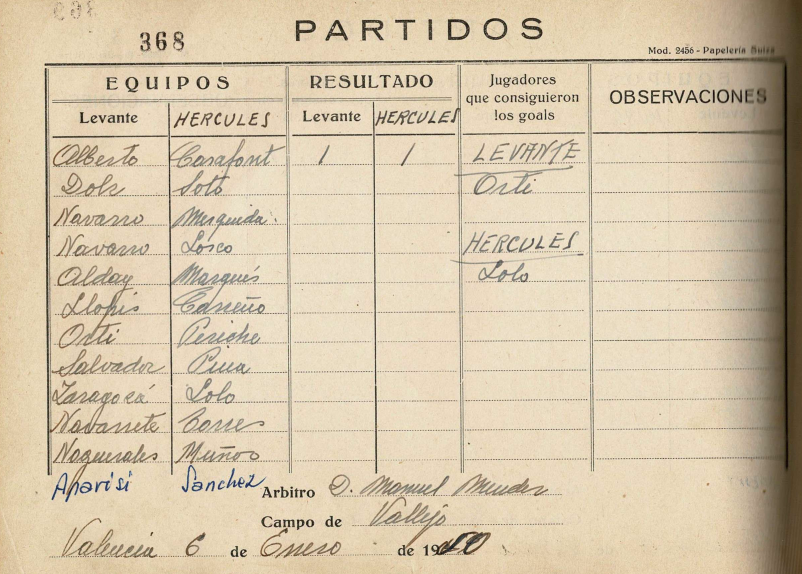 368
PARTIDOS
Mod. 2456 - Papelería
EQUIPOS RESULTADO Jugadores que consiguieron los goals OBSERVACIONES
Levante HERCULES Levante HERCULES
Alberto Casafont 1 1 LEVANTE
Dolz Soto Orti
Navarro Mesquida
Navarro Losco HERCULES
Alday Marqués Lolo
Llopis Carreño
Orti Periche
Salvador Pina
Zaragozá Lolo
Navarrete Torres
Noguerales Muñoz
Aparisi Sanchez
Arbitro D. Manuel
Campo de Vallejo
Valencia 6 de Enero de 19